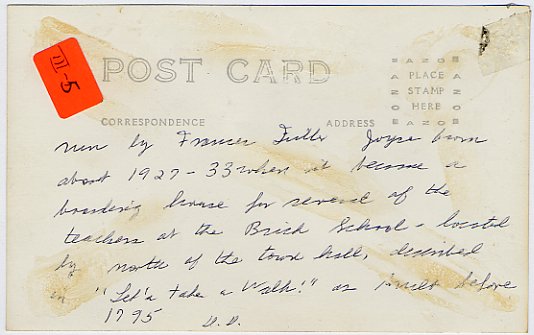 III-5
POST CARD
AZO
PLACE
STAMP
HERE
AZO
CORRESPONDENCE
ADDRESS
run by Frances Fuller Joyce
about 1927-33 when it became a
boarding house for several of the
teachers at the Brick School - located
by north of the town hall, described
in "Let's take a Walk!" as built before
1795